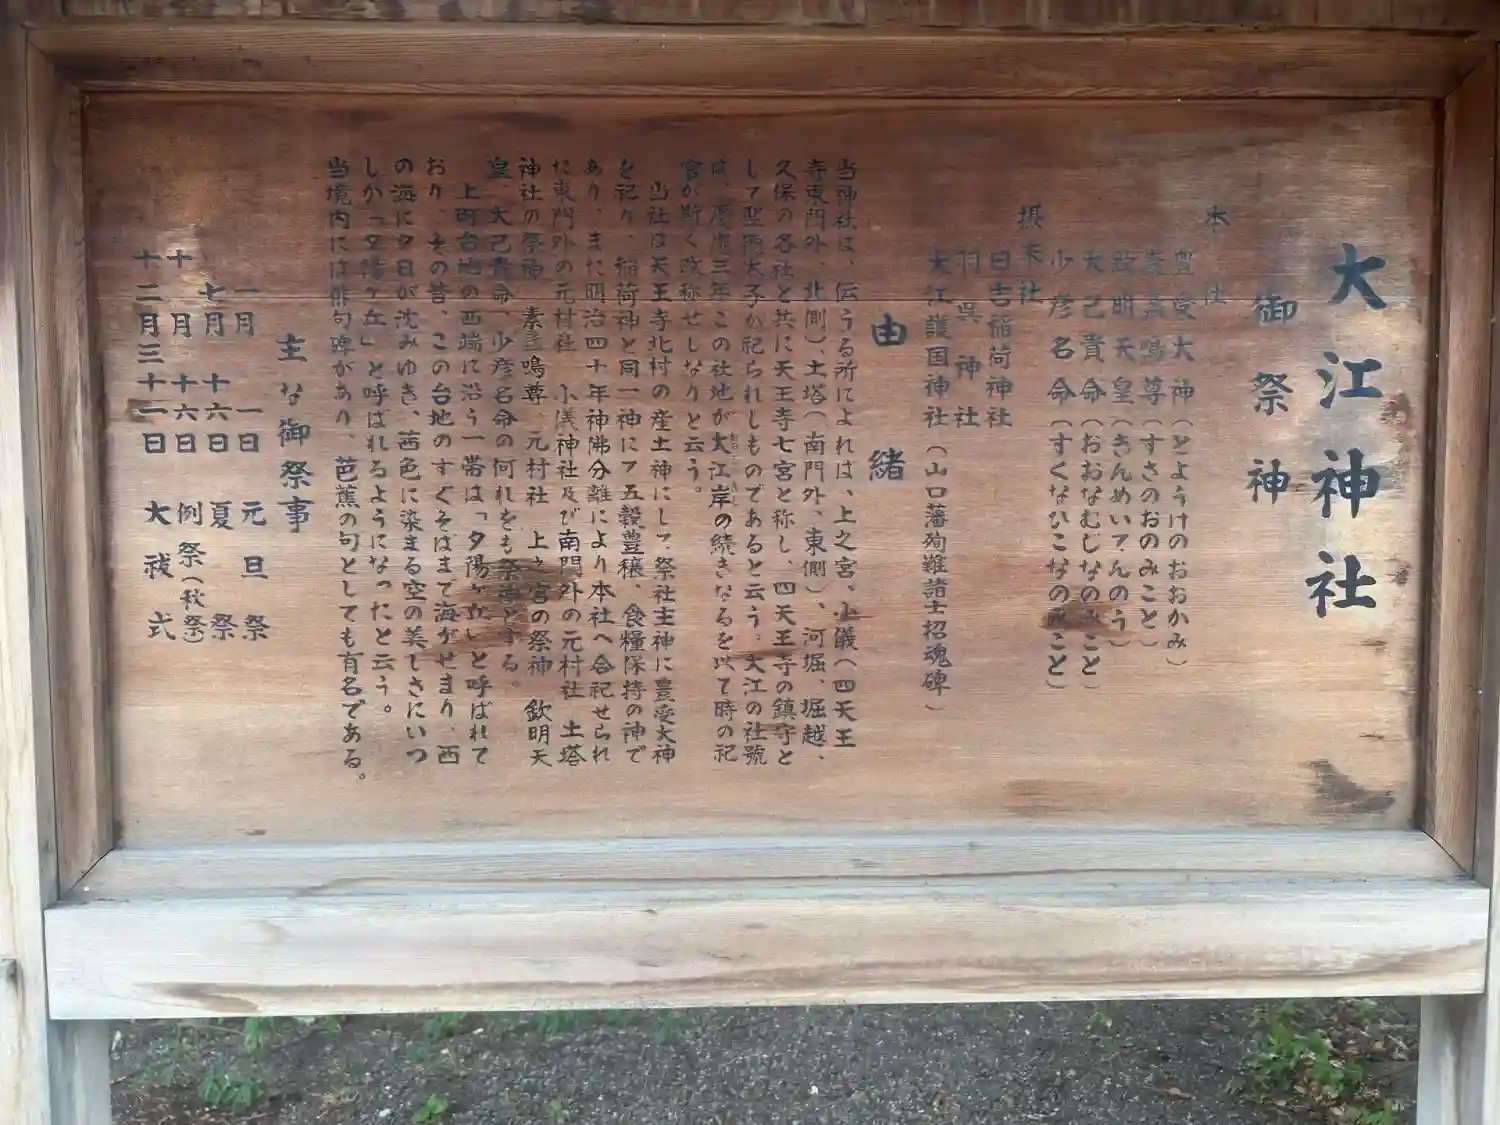 大江神社
御祭神
本社
豊受大神（とようけのおおかみ）
素盞嗚尊（すさのおのみこと）
欽明天皇（きんめいてんのう）
大己貴命（おおなむじなのみこと）
少彦名命（すくなひこなのみこと）
摂末社
日吉稲荷神社
羽呉神社
大江護国神社（山口藩殉難諸士招魂碑）
由緒
当神社は、伝うる所によれば、上之宮、小儀（四天王
寺東門外、北側）、土塔（南門外、東側）、河堀、堀越、
久保の各社と共に天王寺七宮と称し、四天王寺の鎮守と
して聖徳太子が祀られしものであると云う。大江の社號
は、慶應三年この社地が大江岸の続きなるを以て時の祀
官が斯く改称せしなりと云う。
当社は天王寺北村の産土神にして、祭社主神に豊受大神
を祀り、稲荷神と同一神にて五穀豊穣、食糧保持の神で
あり、また明治四十年神佛分離により本社へ合祀せられ
た東門外の元村社 小儀神社及び南門外の元村社 土塔
神社の祭神 素盞嗚尊、元村社 上之宮の祭神 欽明天
皇、大己貴命、少彦名命の何れをも祭神とする。
上町台地の西端に沿う一帯は「夕陽ヶ丘」と呼ばれて
おり、その昔、この台地のすぐそばまで海がせまり、西
の海に夕日が沈みゆき、茜色に染まる空の美しさにいつ
しか「夕陽ヶ丘」と呼ばれるようになったと云う。
当境内には俳句碑があり、芭蕉の句としても有名である。
主な御祭事
一月 一日 元旦祭
七月 十六日 夏祭
十月 十六日 例祭（秋祭）
十二月三十一日 大祓式